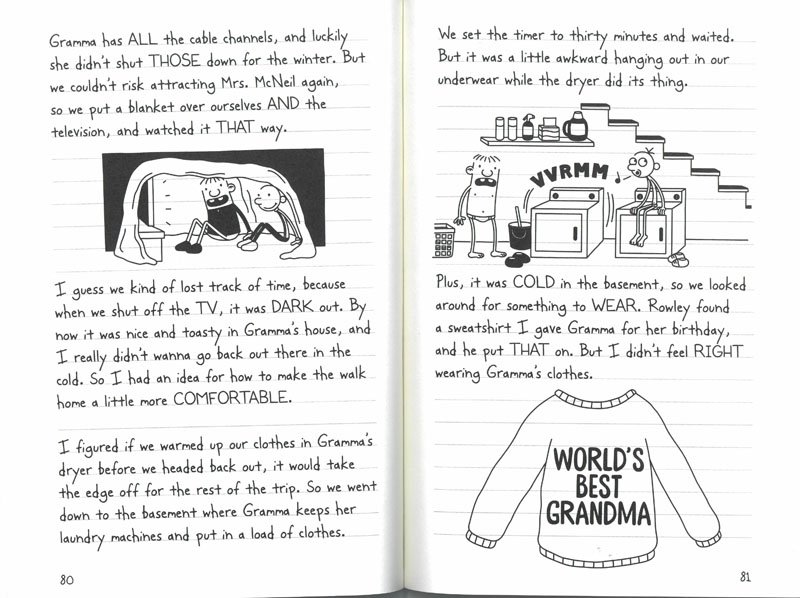 Gramma has ALL the cable channels, and luckily
she didn't shut THOSE down for the winter. But
we couldn't risk attracting Mrs. McNeil again,
so we put a blanket over ourselves AND the
television, and watched it THAT way.
I guess we kind of lost track of time, because
when we shut off the TV, it was DARK out. By
now it was nice and toasty in Gramma's house, and
I really didn't wanna go back out there in the
cold. So I had an idea for how to make the walk
home a little more COMFORTABLE.
I figured if we warmed up our clothes in Gramma's
dryer before we headed back out, it would take
the edge off for the rest of the trip. So we went
down to the basement where Gramma keeps her
laundry machines and put in a load of clothes.
80
We set the timer to thirty minutes and waited.
But it was a little awkward hanging out in our
underwear while the dryer did its thing.
VVRMM
Plus, it was COLD in the basement, so we looked
around for something to WEAR. Rowley found
a sweatshirt I gave Gramma for her birthday,
and he put THAT on. But I didn't feel RIGHT
wearing Gramma's clothes.
WORLD'S
BEST
GRANDMA
81